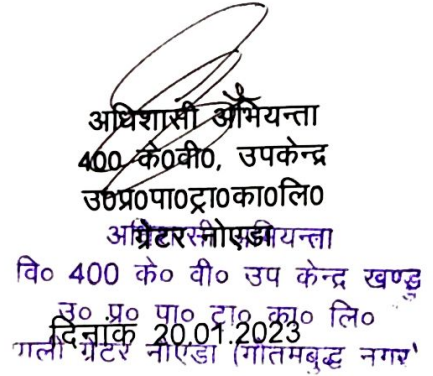 अधिशासी अभियन्ता
400 के०वी०, उपकेन्द्र
उ०प्र०पा०ट्रा०का०लि०
ग्रेटर नोएडा
अधिशासी अभियन्ता
वि० 400 के० वी० उप केन्द्र खण्ड
उ० प्र० पा० ट्रा० का० लि०
दिनांक 20.01.2023
ग्रेटर नोएडा (गौतमबुद्ध नगर